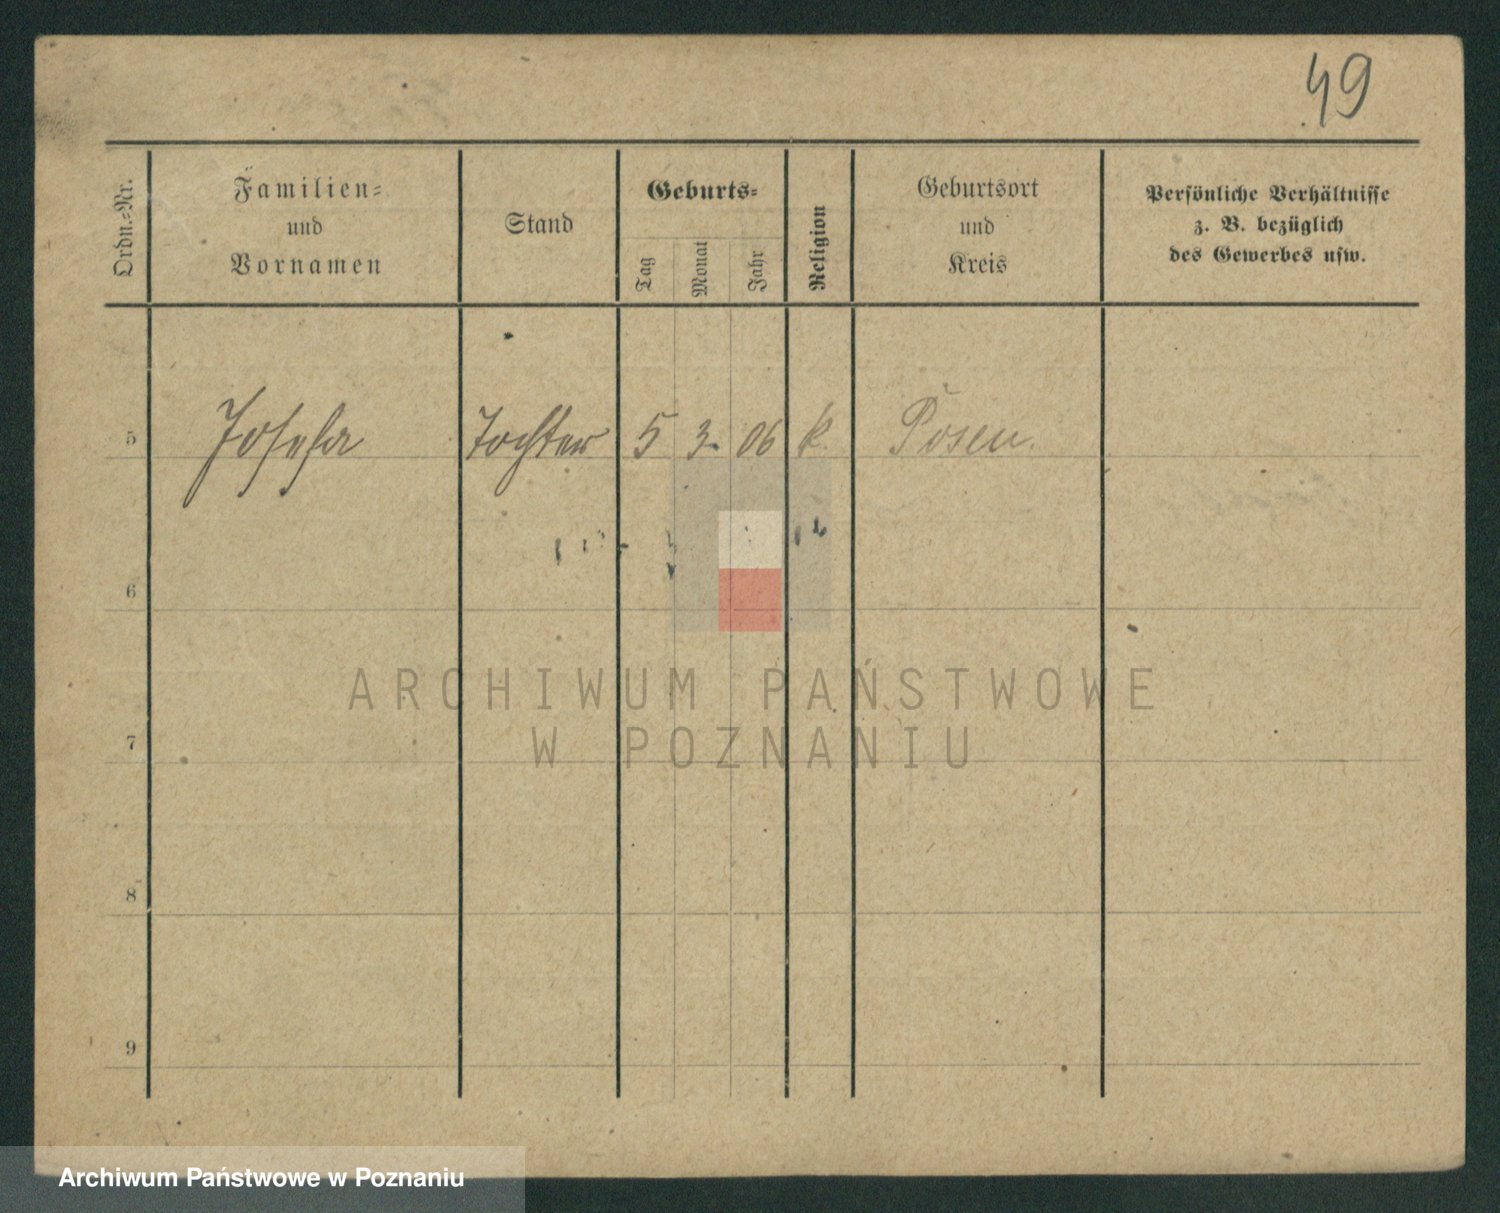 49
Ordn.=Nr.
Familien=
und
Vornamen
Stand
Geburts=
Tag
Monat
Jahr
Religion
Geburtsort
und
Kreis
Persönliche Verhältnisse
z. B. bezüglich
des Gewerbes usw.
5 Josefa Tochter 5 3. 06 k. Posen.
6
7
8
9
ARCHIWUM PAŃSTWOWE
W POZNANIU
Archiwum Państwowe w Poznaniu